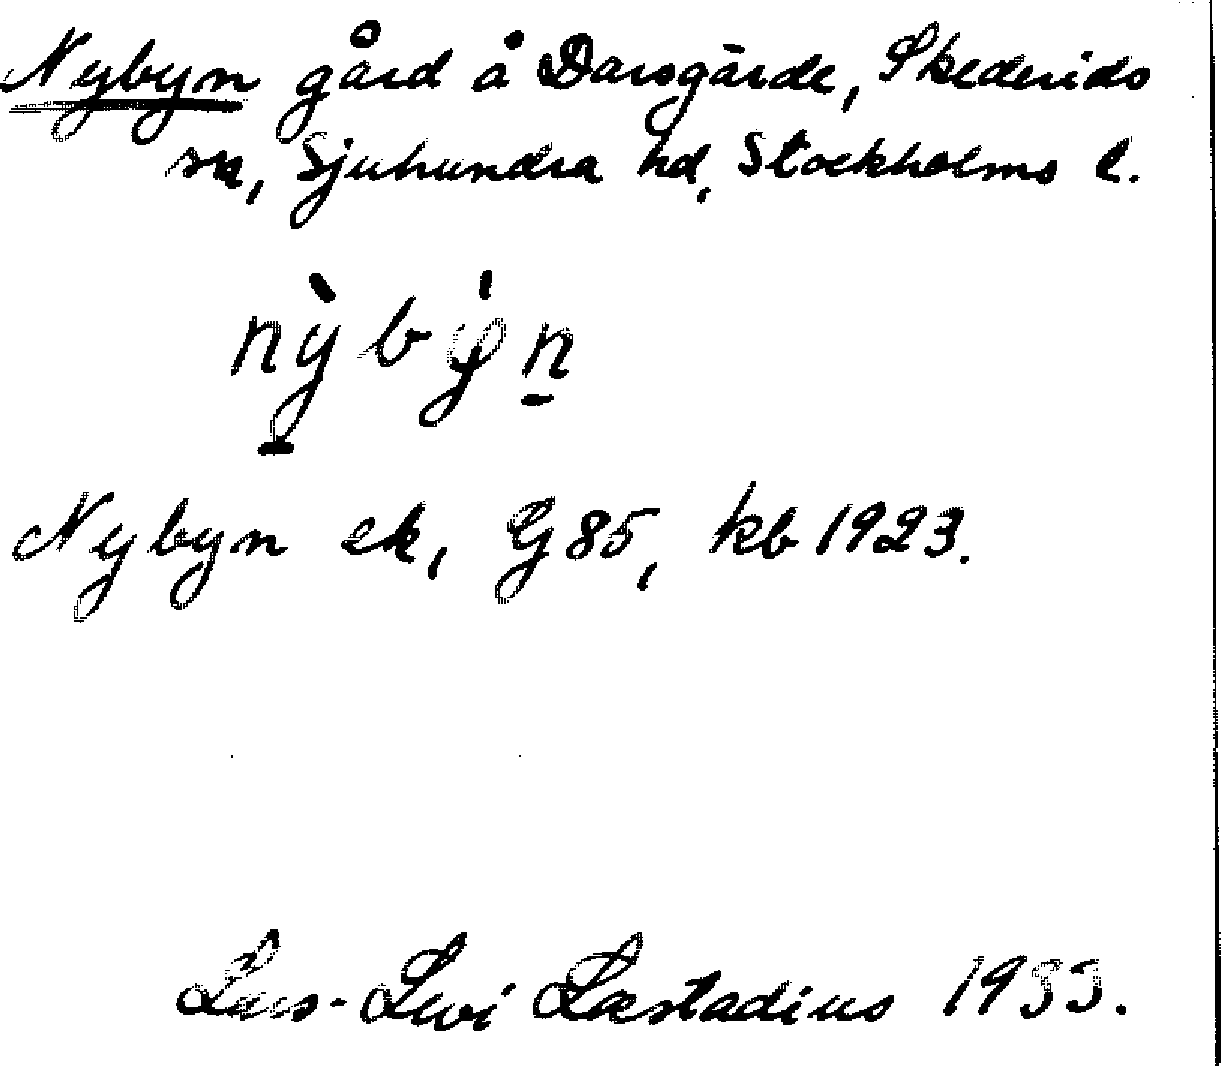 Nybyn gård å Darsgärde, Skederids
sn, Sjuhundra hd, Stockholms l.
nỳbýn
Nybyn ek, G85, kb 1923.
Lars-Levi Læstadius 1933.